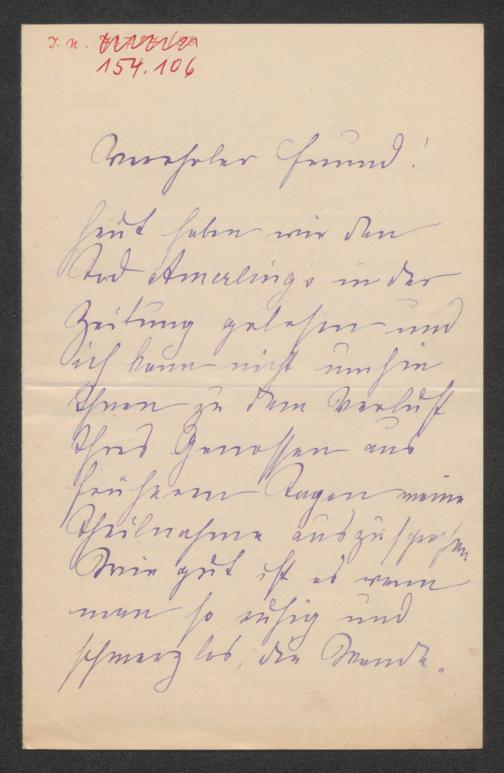 I. N.
154.106
Verehrter Freund!
Heut haben wir den
Tod Amerling's in der
Zeitung gelesen und
ich kann nicht umhin
Ihnen zu dem Verlust
Ihres Genossen aus
früheren Tagen meine
Theilnahme auszusprechen
Wie gut ist es wenn
man so ruhig und
schmerzlos, die Wande-